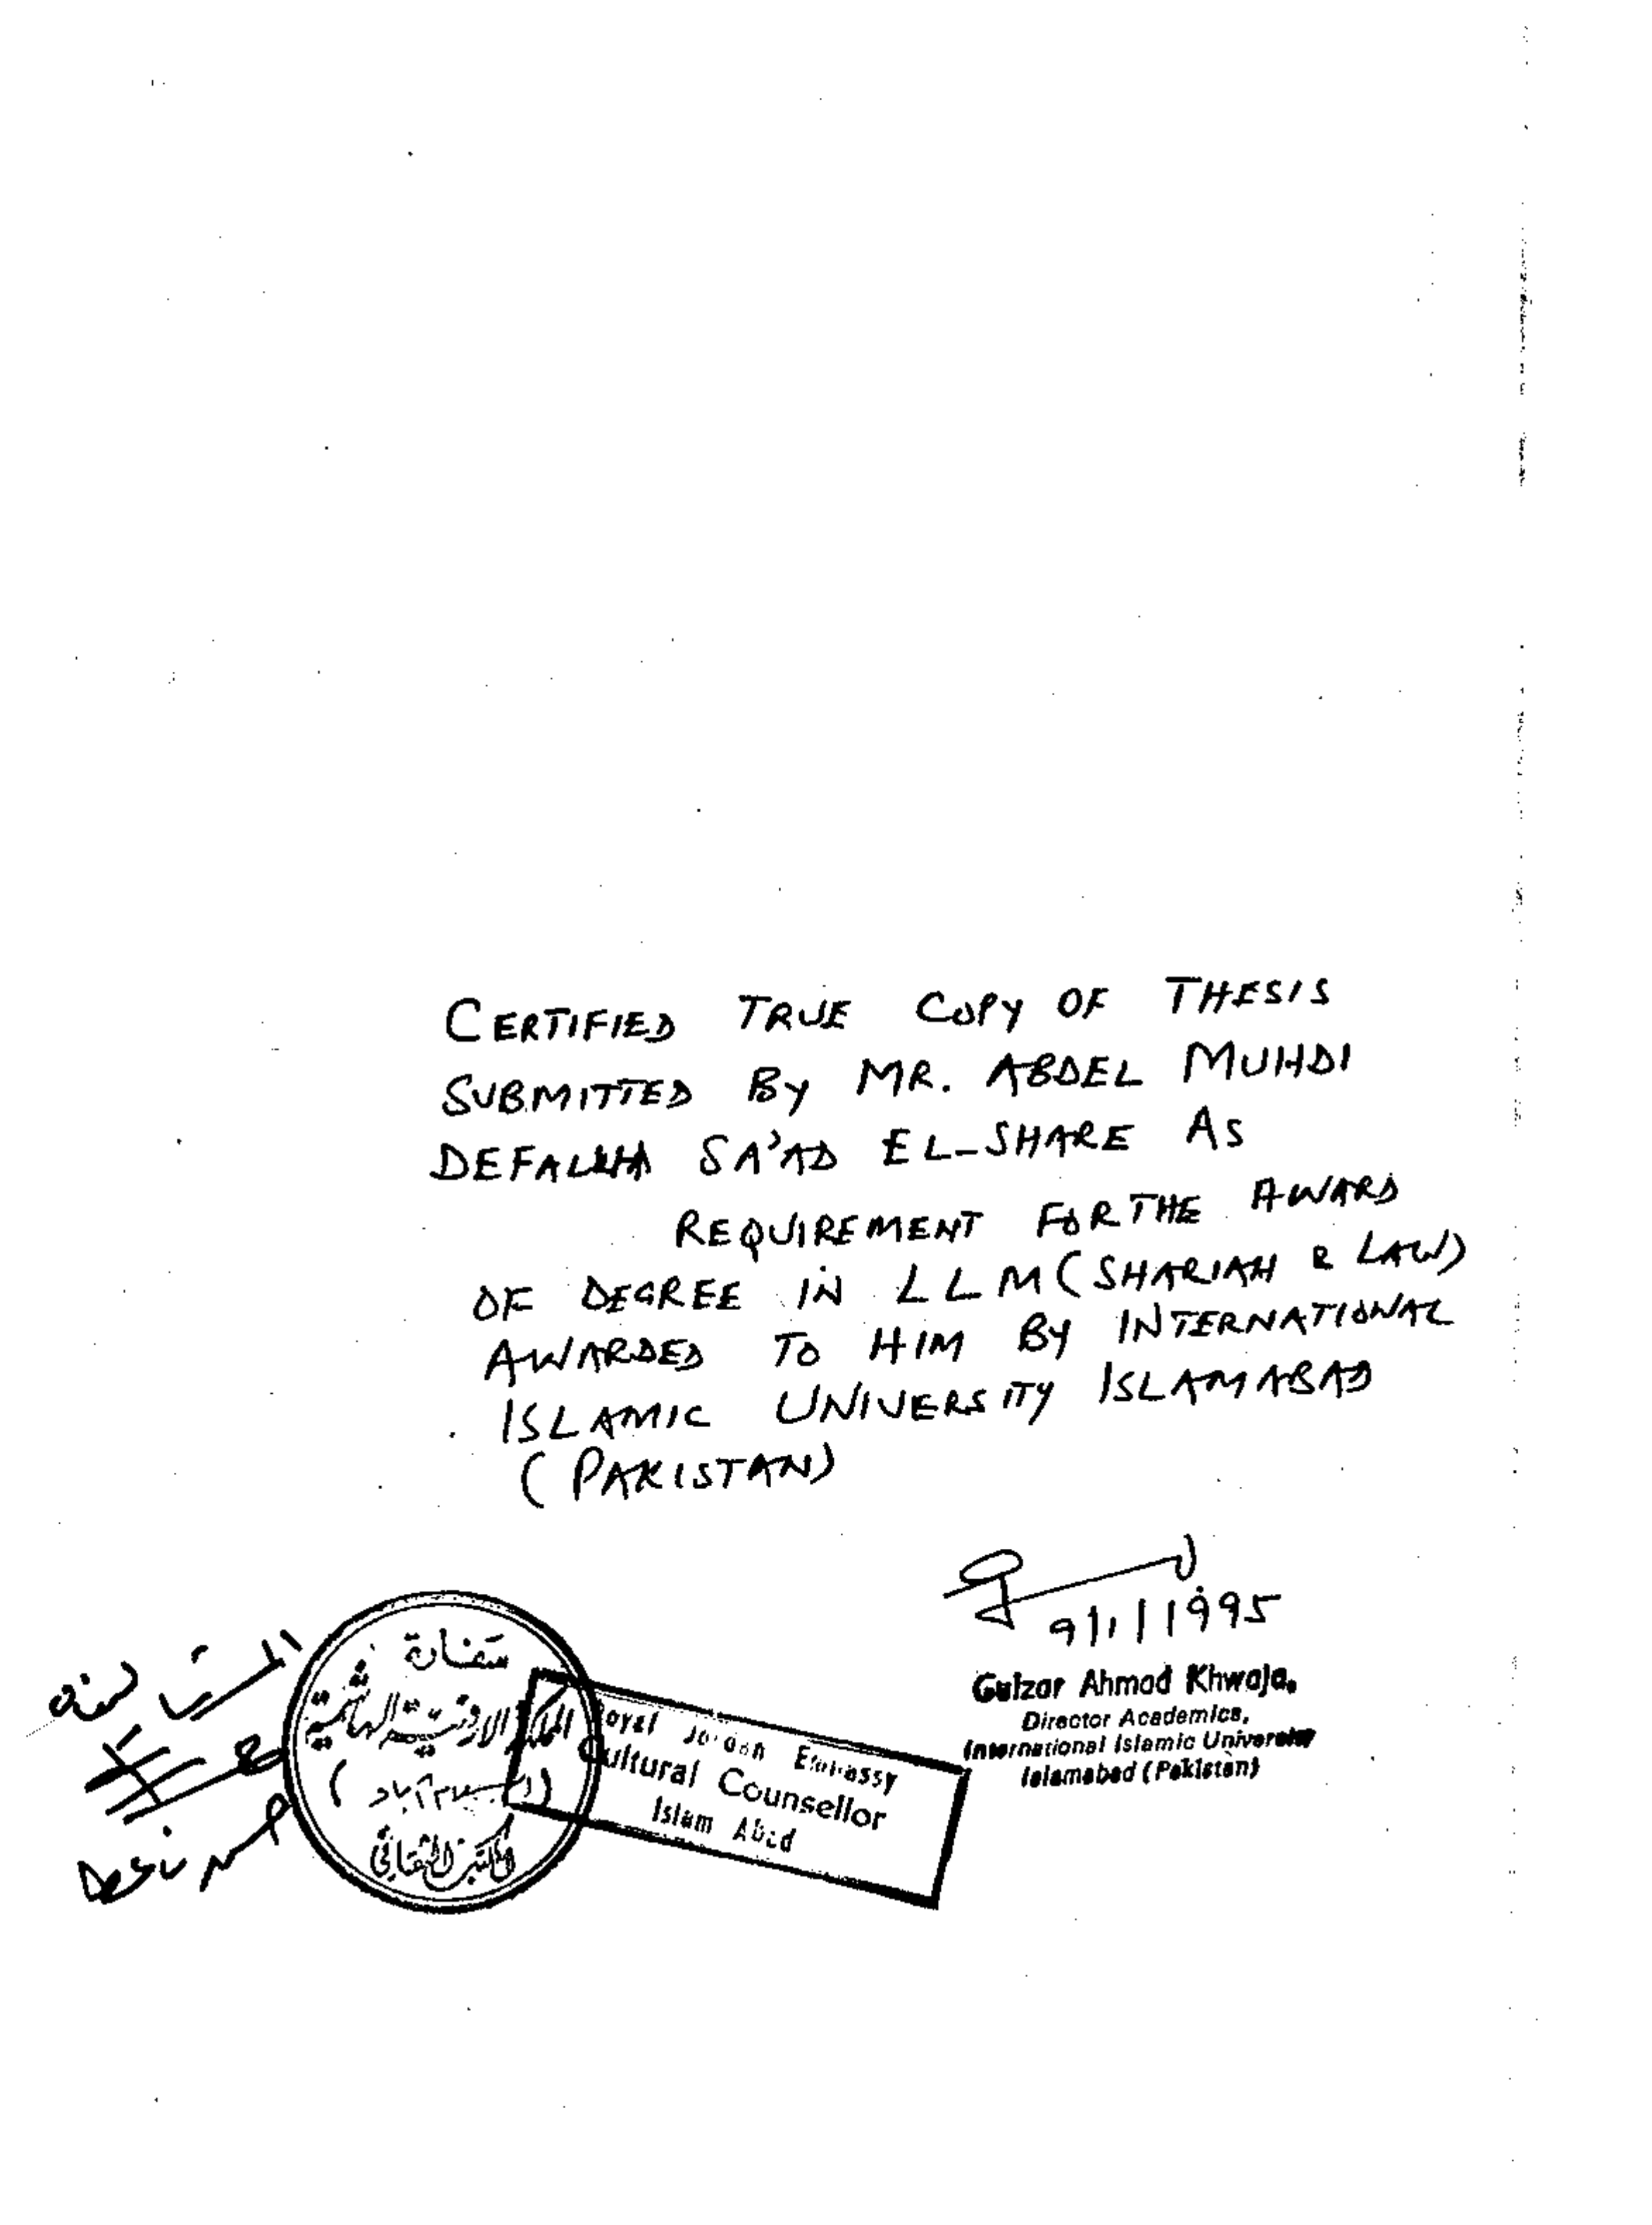 CERTIFIED TRUE COPY OF THESIS
SUBMITTED BY MR. ABDEL MUHDI
SA'AD EL-SHARE AS
REQUIREMENT FOR THE AWARD
OF DEGREE IN LLM (SHARIAH & LAW)
AWARDED TO HIM BY INTERNATIONAL
ISLAMIC UNIVERSITY ISLAMABAD
(PAKISTAN)
9/1/1995
Gulzar Ahmad Khwaja,
Director Academics,
International Islamic University
Islamabad (Pakistan)
سفارة
المملكة الاردنية الهاشمية
(اسلام آباد)
المكتب الثقافي
Royal Jordan Embassy
Cultural Counsellor
Islam Abad